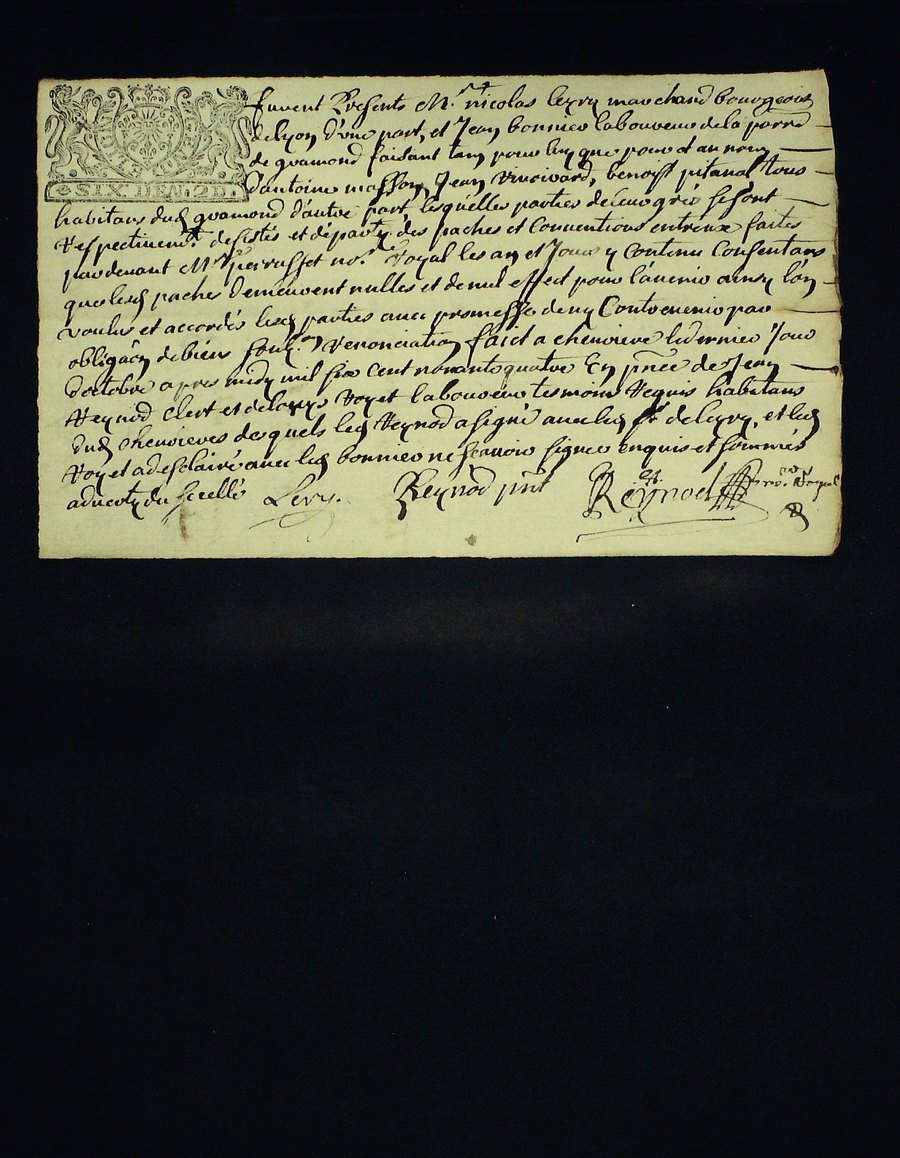 SIX DEN. 2D.
furent Presents Mr nicolas leyry marchand bourgeois
de lyon d'une part, et Jean bonnier laboureur de la parre
de gramond faisant tam pour luy que pour et au nom
d'antoine masson, Jean benoist pitanal tous
habitans dud gramond d'autre part, lesquelles parties de leur gré se sont
respectivement desistés et departy des paches et Conventions entreux faites
pardevant Mre perrusset nore royal les an et Jour y contenu Consentans
que lesd paches demeurent nulles et de nul effect pour l'avenir ainsy l'on
voulus et accordés lesd parties avec promesse de ny Contrevenir par
obligaon de biens renonciation faict a chevriere le dernier Jour
d'octobre apres midy mil six cent nonante quatre En pnce de Jean
Reynod clert et de voyet laboureur tesmoins requis habitans
dud chevrieres desquels led Reynod a signé avec led sr de leyry, et led
voyet a desclairé avec led bonnier ne scavoir signer enquis et sommés
du scellé Leyry. Reynod pnt Reynod nore Royal